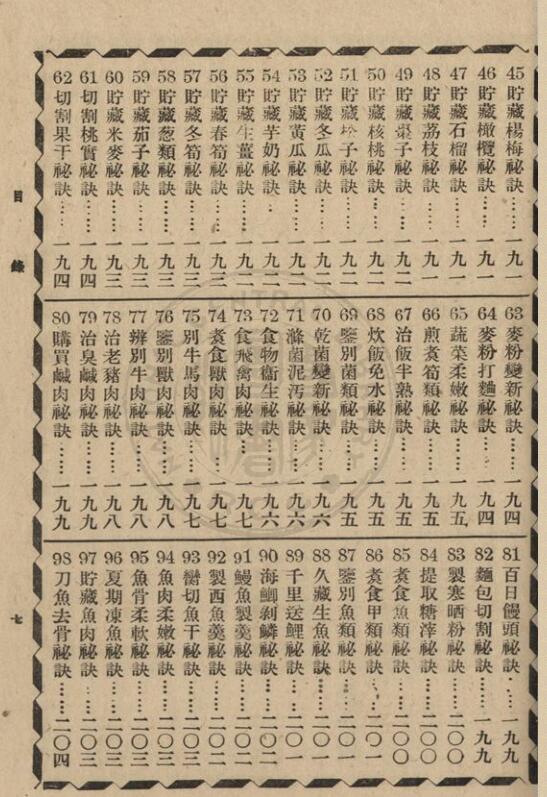 45貯藏楊梅祕訣……一九一
46貯藏橄欖祕訣……一九一
47貯藏石榴祕訣……一九一
48貯藏荔枝祕訣……一九一
49貯藏棗子祕訣……一九二
50貯藏核桃祕訣……一九二
51貯藏松子祕訣……一九二
52貯藏冬瓜祕訣……一九二
53貯藏黃瓜祕訣……一九二
54貯藏芋奶祕訣……一九二
55貯藏生薑祕訣……一九二
56貯藏春筍祕訣……一九三
57貯藏冬筍祕訣……一九三
58貯藏葱類祕訣……一九三
59貯藏茄子祕訣……一九三
60貯藏米麥祕訣……一九三
61切割桃實祕訣……一九四
62切割果干祕訣……一九四
63麥粉變新祕訣……一九四
64麥粉打麵祕訣……一九四
65蔬菜柔嫩祕訣……一九五
66煎煮筍類祕訣……一九五
67治飯半熟祕訣……一九五
68炊飯免水祕訣……一九五
69鑒別菌類祕訣……一九五
70乾菌變新祕訣……一九六
71滌菌泥汚祕訣……一九六
72食物衞生祕訣……一九六
73食飛禽肉祕訣……一九七
74煮食獸肉祕訣……一九七
75別牛馬肉祕訣……一九七
76鑒別獸肉祕訣……一九八
77辨別牛肉祕訣……一九八
78治老豬肉祕訣……一九八
79治臭鹹肉祕訣……一九九
80購買鹹肉祕訣……一九九
81百日饅頭祕訣……一九九
82麵包切割祕訣……一九九
83製寒晒粉祕訣……二〇〇
84提取糖滓祕訣……二〇〇
85煮食魚類祕訣……二〇〇
86煮食甲類祕訣……二〇一
87鑒別魚類祕訣……二〇一
88久藏生魚祕訣……二〇一
89千里送鯉祕訣……二〇一
90海鯽剝鱗祕訣……二〇二
91鰻魚製羹祕訣……二〇二
92製西魚羹祕訣……二〇二
93臠切魚干祕訣……二〇二
94魚肉柔嫩祕訣……二〇三
95魚骨柔軟祕訣……二〇三
96夏期凍魚祕訣……二〇三
97貯藏魚肉祕訣……二〇三
98刀魚去骨祕訣……二〇四
目錄
七